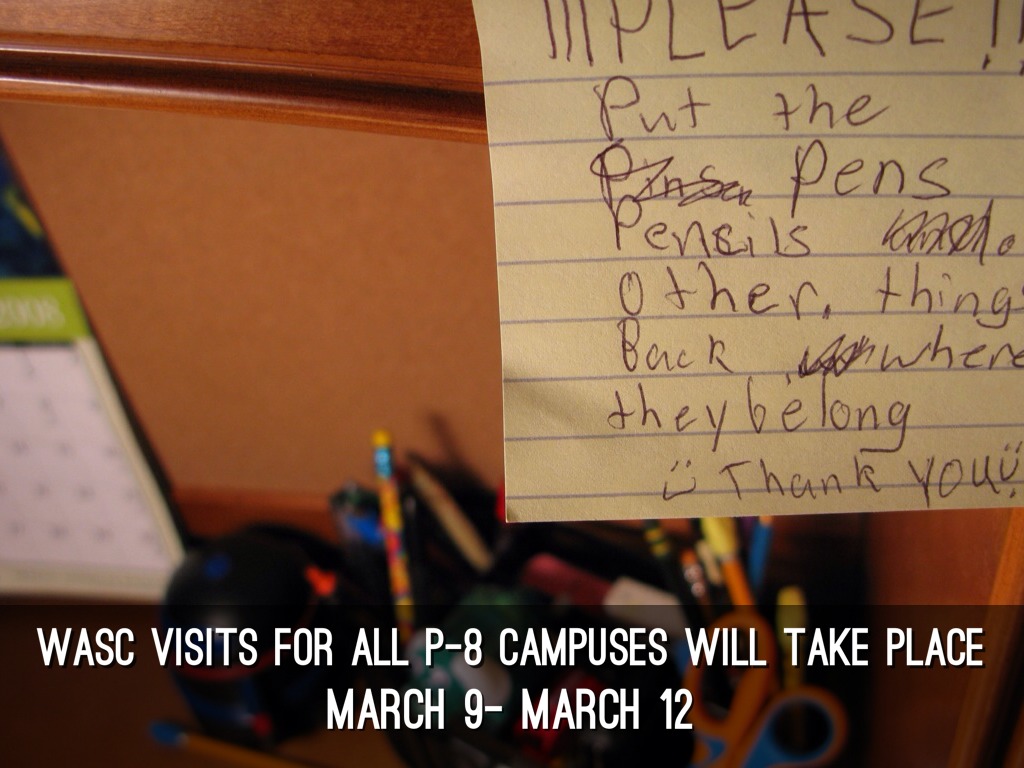 !!!PLEASE!!
Put the
Pens
Pencils
Other, things
Back where
they belong
Thank YOU!
2008
WASC VISITS FOR ALL P-8 CAMPUSES WILL TAKE PLACE
MARCH 9- MARCH 12